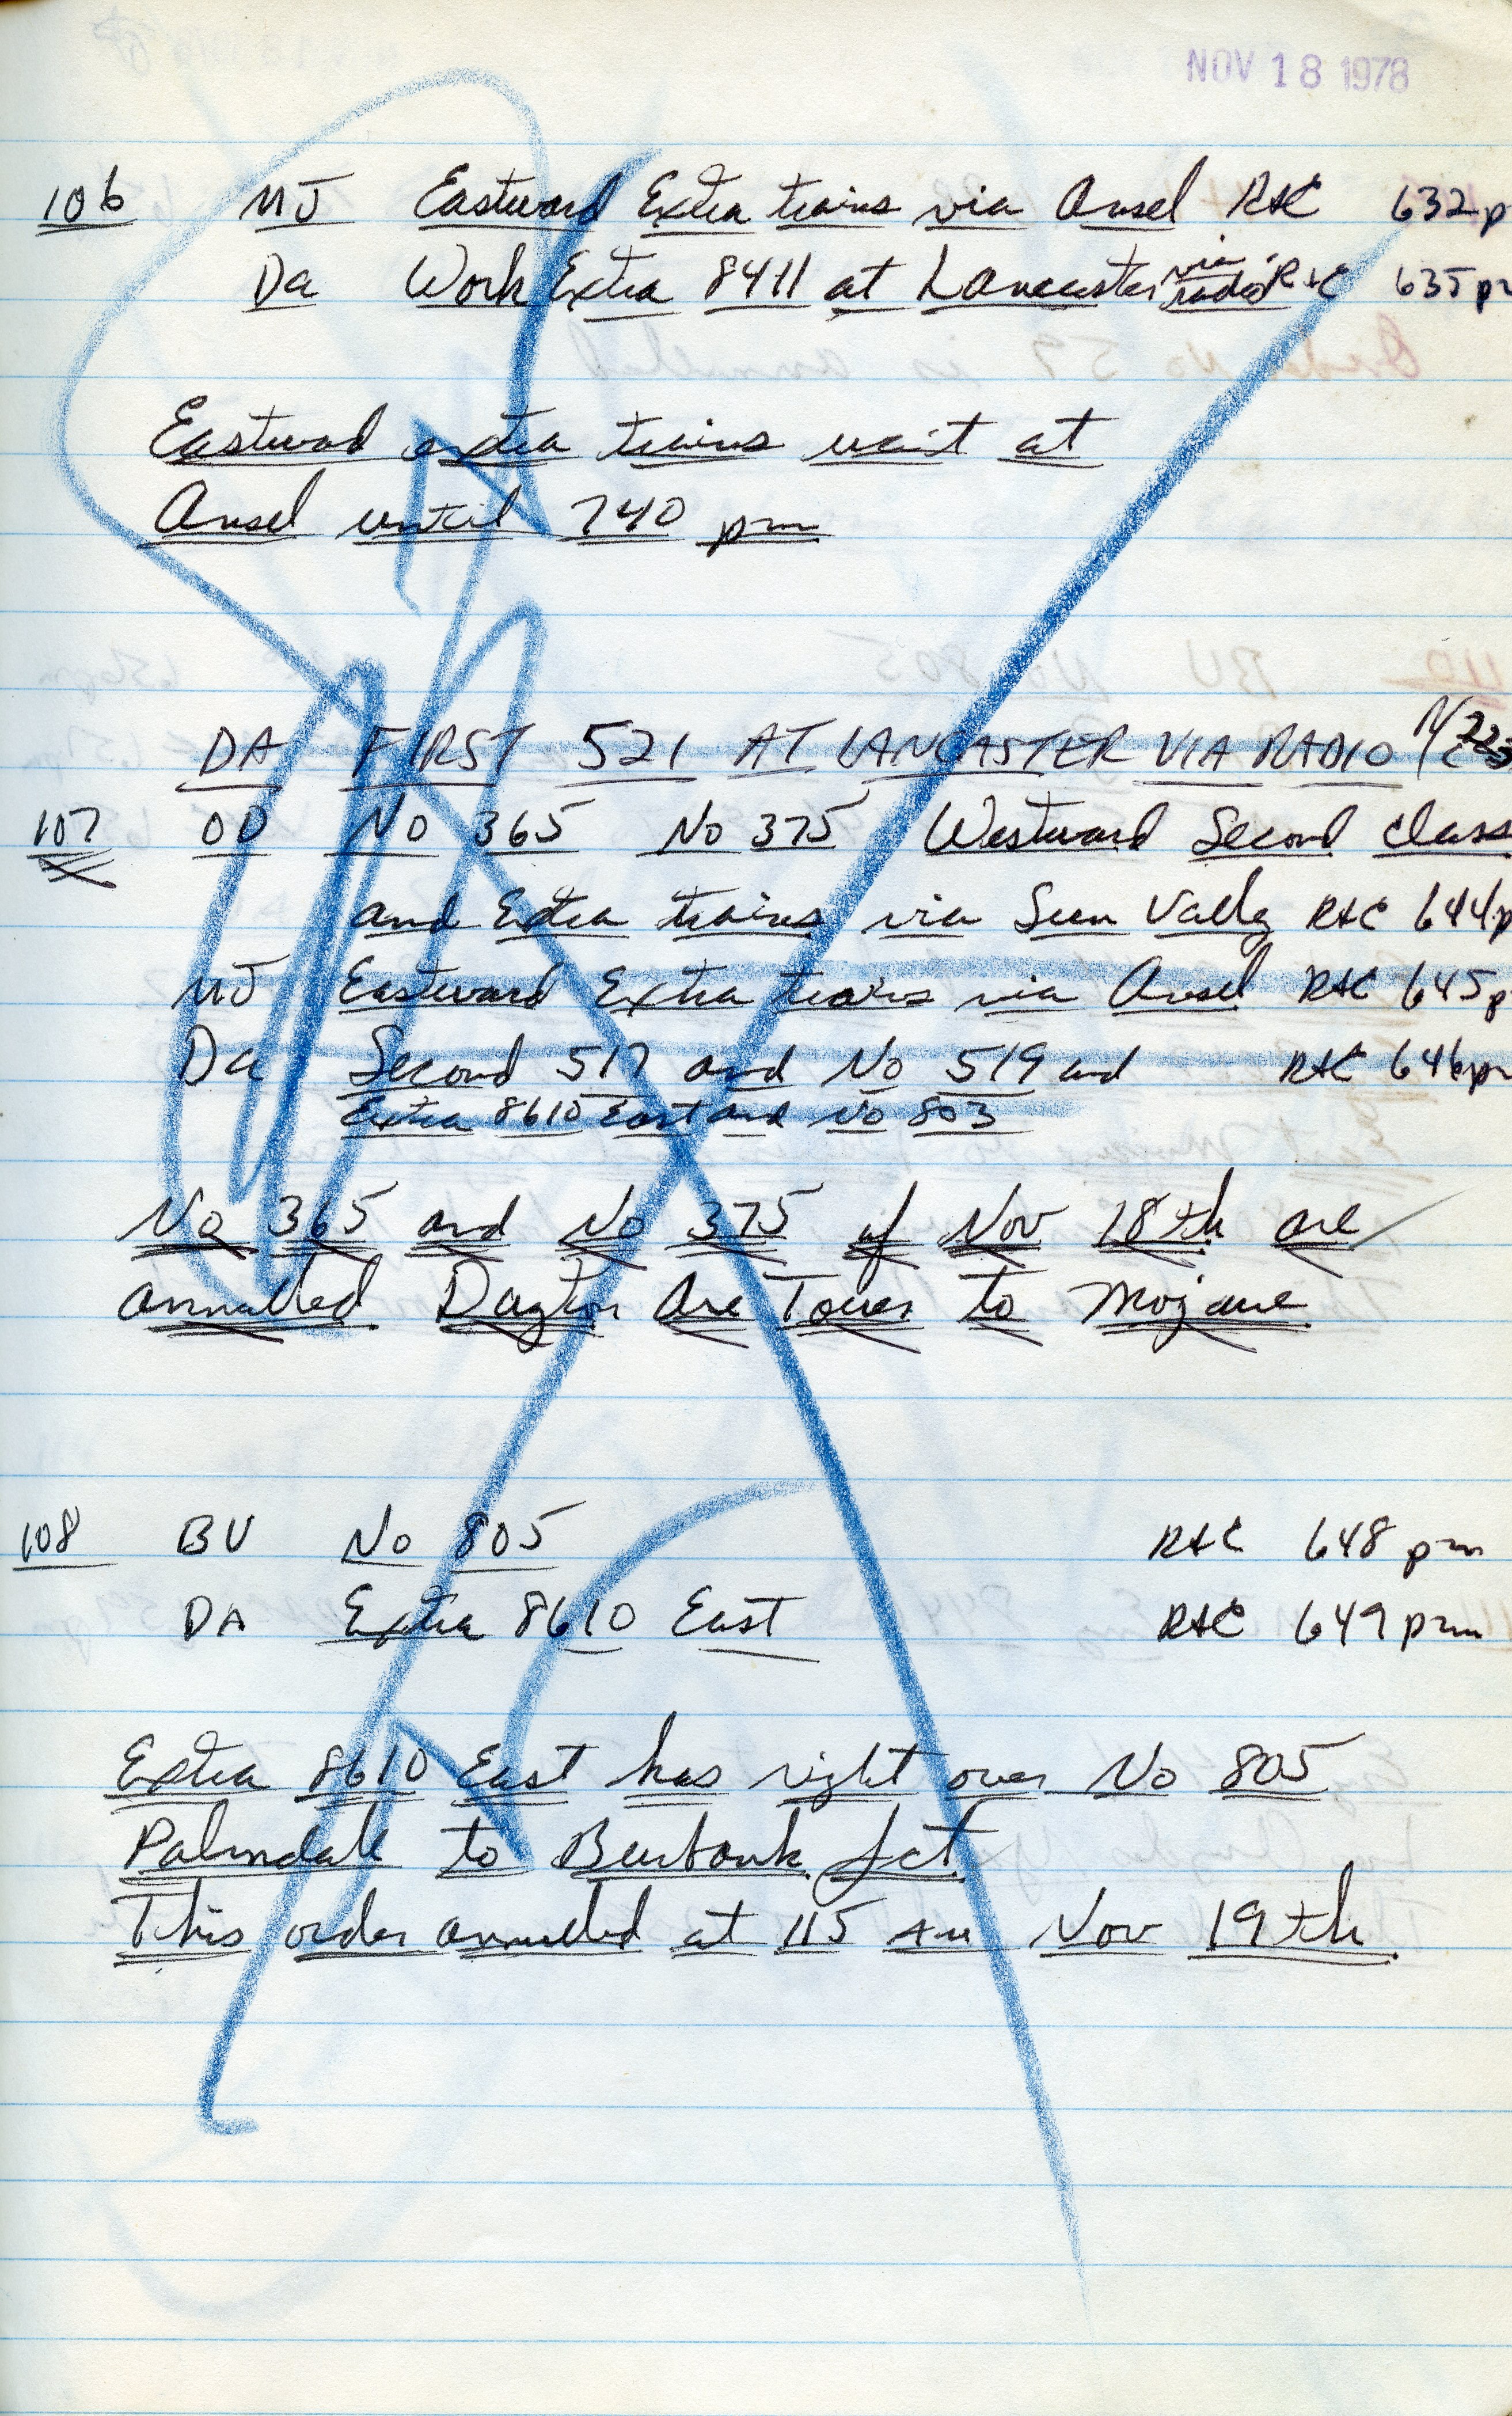 NOV 18 1978
106 MJ Eastward Extra trains via Ansel R&C 632 p
Da Work Extra 8411 at Lancaster via radio R&C 635 pm
Eastward extra trains wait at
Ansel until 740 pm
DA FIRST 521 AT LANCASTER VIA RADIO
107 OD No 365 No 375 Westward Second Class
and Extra trains via Sun Valley R&C 644 p
MJ Eastward Extra trains via Ansel R&C 645 p
Da Second 517 and No 519 and R&C 646 pm
Extra 8610 East and No 803
No 365 and No 375 of Nov 18th are
annulled Dayton Ave Tower to Mojave
108 BU No 805 R&C 648 pm
DA Extra 8610 East R&C 649 pm
Extra 8610 East has right over No 805
Palmdale to Burbank Jct
This order annulled at 115 am Nov 19th